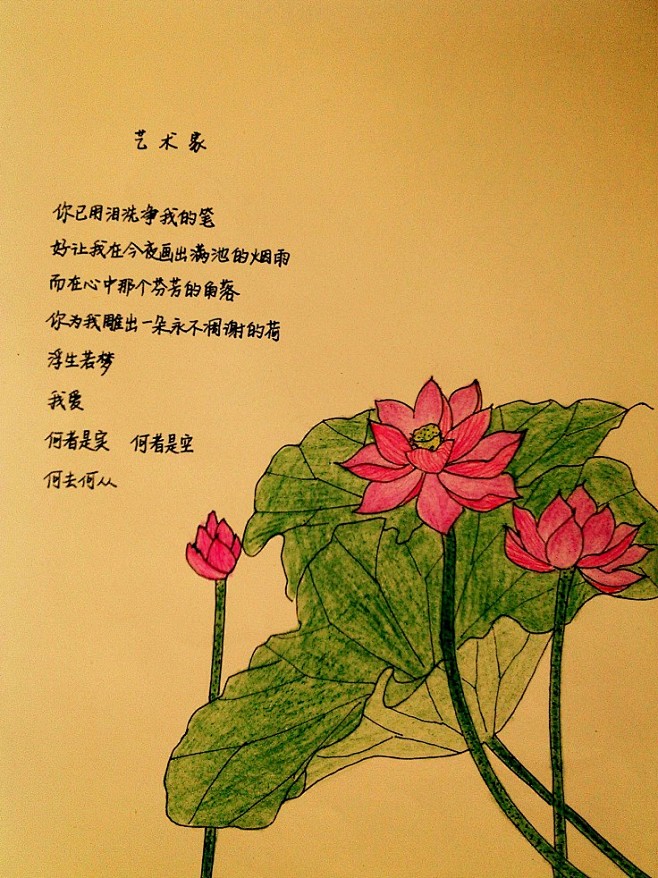 艺术家
你已用泪洗净我的笔
好让我在今夜画出满池的烟雨
而在心中那个芬芳的角落
你为我雕出一朵永不凋谢的荷
浮生若梦
我爱
何者是实 何者是空
何去何从